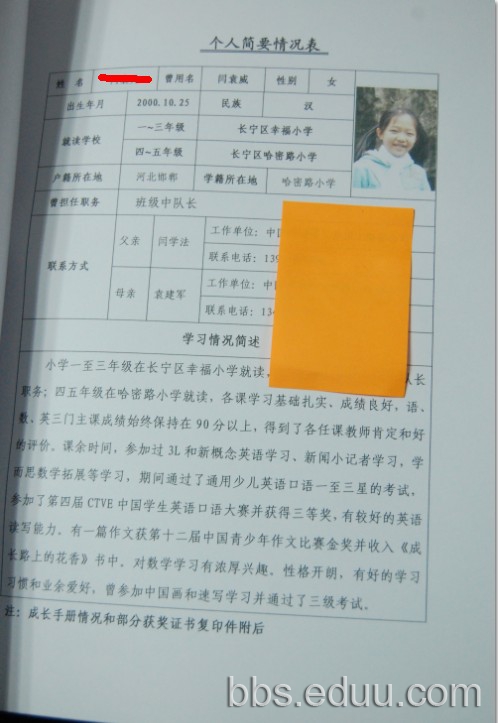 个人简要情况表
姓 名 曾用名 闫袁威 性别 女
出生年月 2000.10.25 民族 汉
就读学校 一~三年级 长宁区幸福小学
四~五年级 长宁区哈密路小学
户籍所在地 河北邯郸 学籍所在地 哈密路小学
曾担任职务 班级中队长
联系方式 父亲 闫学法 工作单位：中
联系电话：139
母亲 袁建军 工作单位：中
联系电话：134
学习情况简述
小学一至三年级在长宁区幸福小学就读， 队长
职务；四五年级在哈密路小学就读，各课学习基础扎实、成绩良好，语、
数、英三门主课成绩始终保持在90分以上，得到了各任课教师肯定和好
的评价。课余时间，参加过3L和新概念英语学习、新闻小记者学习，学
而思数学拓展等学习，期间通过了通用少儿英语口语一至三星的考试。
参加了第四届CTVE中国学生英语口语大赛并获得三等奖，有较好的英语
读写能力。有一篇作文获第十二届中国青少年作文比赛金奖并收入《成
长路上的花香》书中。对数学学习有浓厚兴趣、性格开朗，有好的学习
习惯和业余爱好，曾参加中国画和速写学习并通过了三级考试。
注：成长手册情况和部分获奖证书复印件附后
bbs.eduu.com